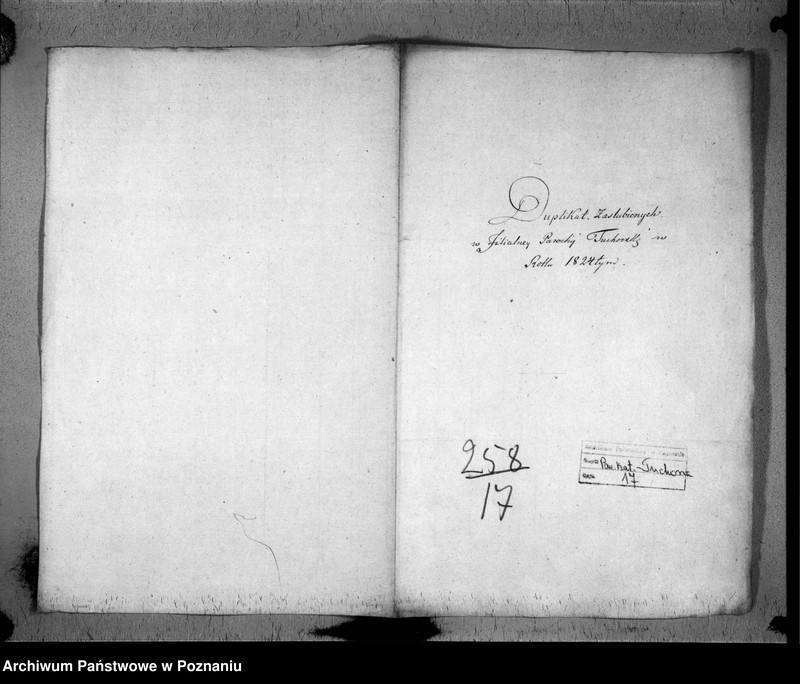 Duplikat Zaslubionych
w Filialney Parochij Tuchorski w
Roku 1824tym.
258
17
Par. Kat. Tuchorza
17
Archiwum Państwowe w Poznaniu